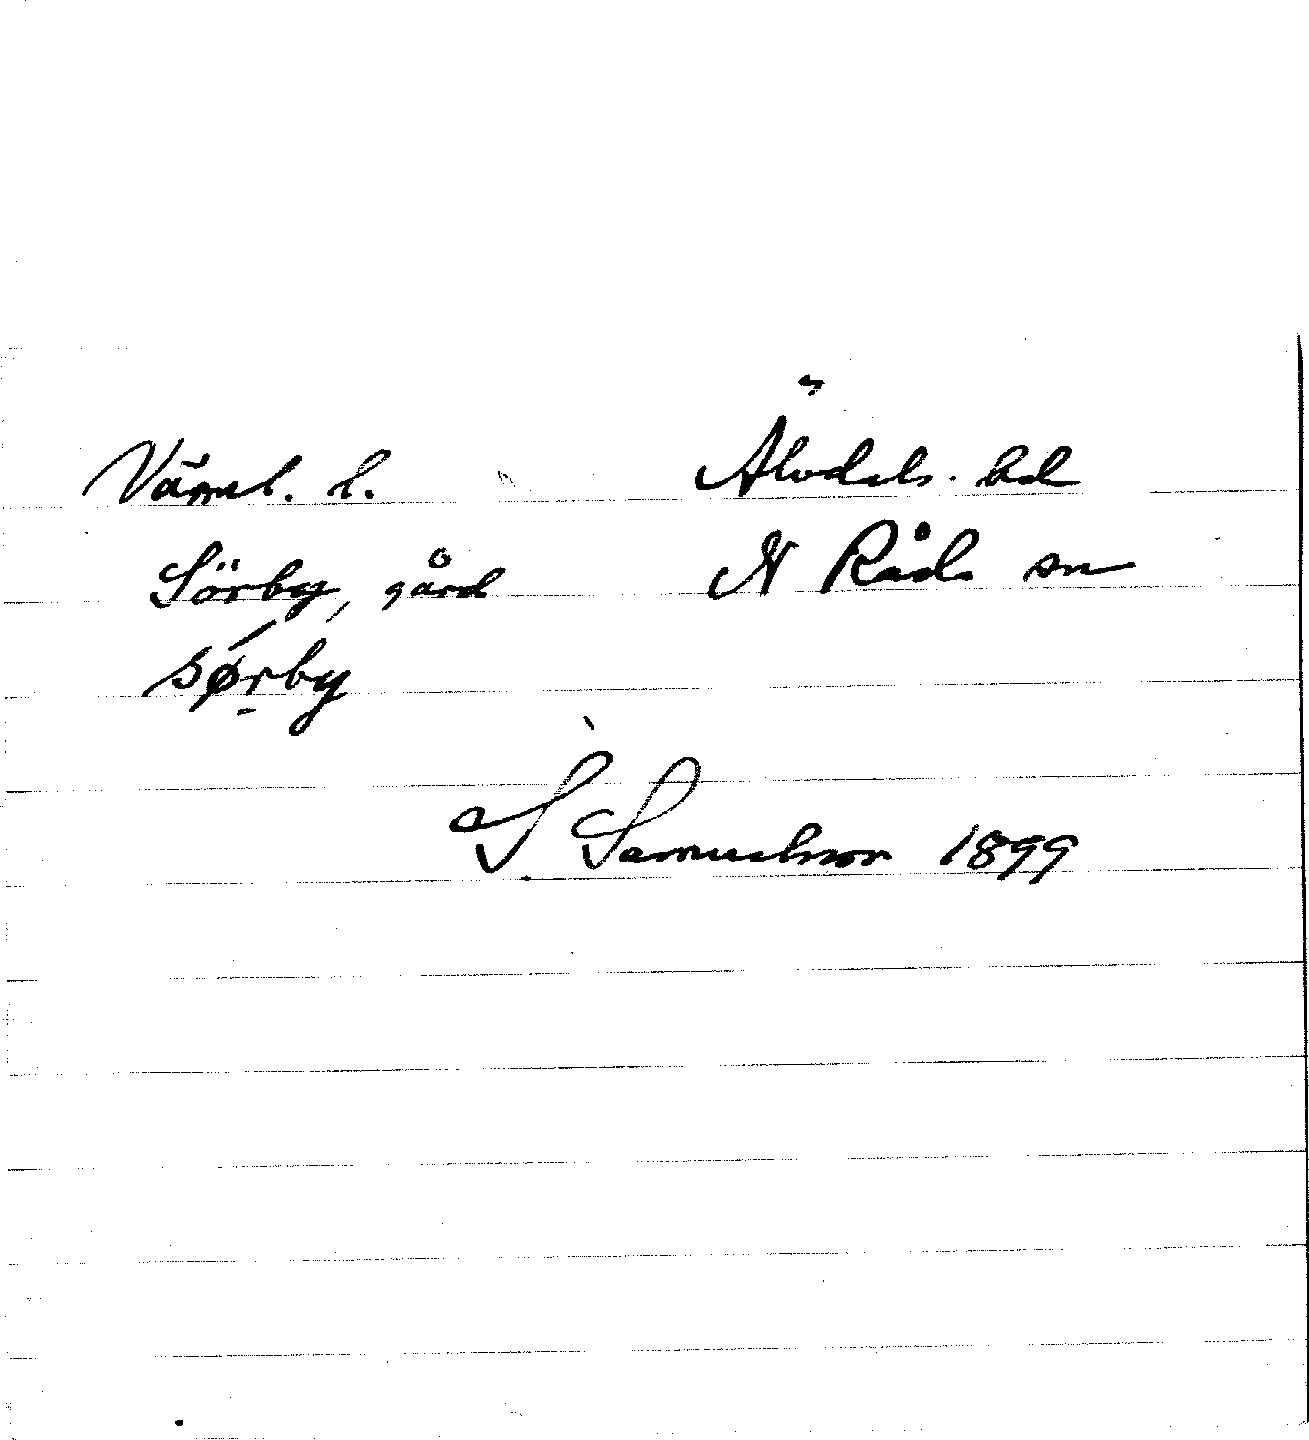 Värml. l. Älvdals. hd
Sörby, gård N Råda sn
sørby
S Samuelsson 1899